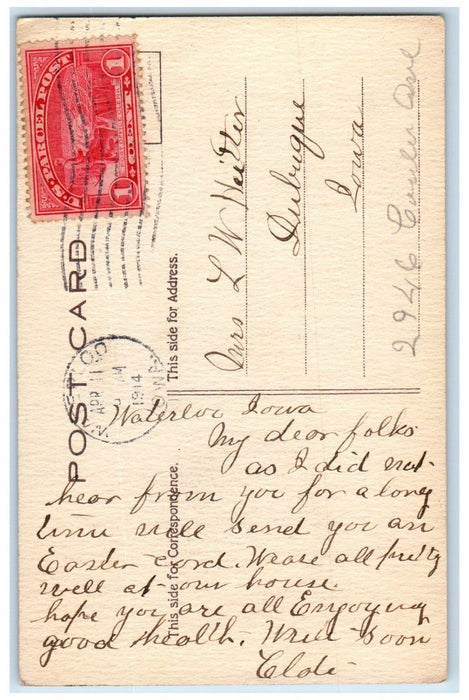 U.S. PARCEL POST
1 CENT 1
POST CARD
WATERLOO
APR 11
AM
1914
IOWA
This side for Correspondence.
This side for Address.
Mrs L W
Dubuque
Iowa
2946 Ave
Waterloo Iowa
My dear folks
as I did not
hear from you for a long
time will send you an
Easter Cord. We are all pretty
well at our house.
hope you are all Engoying
good health. Write soon